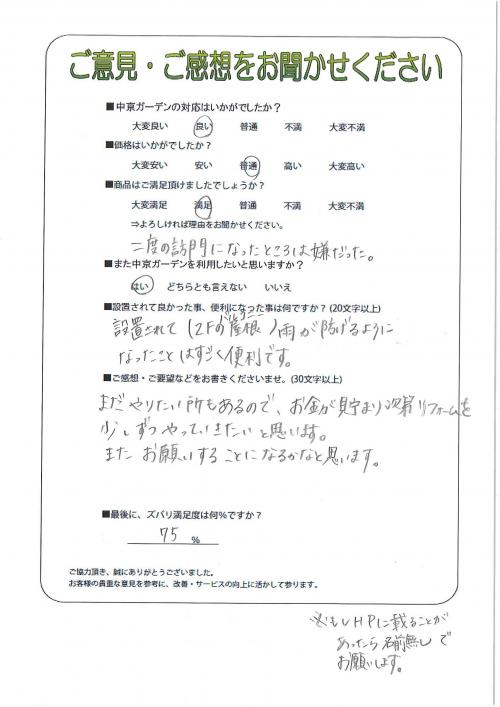 ご意見・ご感想をお聞かせください
■中京ガーデンの対応はいかがでしたか？
大変良い 良い 普通 不満 大変不満
■価格はいかがでしたか？
大変安い 安い 普通 高い 大変高い
■商品はご満足頂けましたでしょうか？
大変満足 満足 普通 不満 大変不満
⇒よろしければ理由をお聞かせください。
二度の訪問になったところは嫌だった。
■また中京ガーデンを利用したいと思いますか？
はい どちらとも言えない いいえ
■設置されて良かった事、便利になった事は何ですか？(20文字以上)
設置されて(2Fの屋根)雨が防げるように
なったことはすごく便利です。
■ご感想・ご要望などをお書きくださいませ。(30文字以上)
まだやりたい所もあるので、お金が貯まり次第リフォームを
少しずつやっていきたいと思います。
またお願いすることになるかなと思います。
■最後に、ズバリ満足度は何％ですか？
75 ％
ご協力頂き、誠にありがとうございました。
お客様の貴重な意見を参考に、改善・サービスの向上に活かして参ります。
※もしHPに載ることが
あったら名前無しで
お願いします。